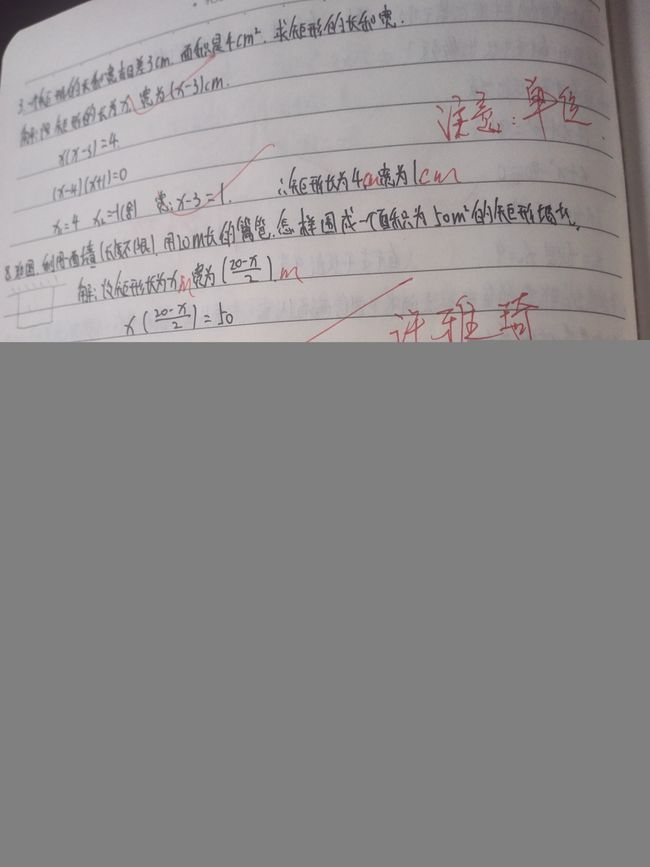 3.一个矩形的长和宽相差3cm,面积是4cm²,求矩形的长和宽.
解:设矩形的长为x,宽为(x-3)cm.
注意:单位
x(x-3)=4
(x-4)(x+1)=0
x₁=4 x₂=-1(舍) 宽:x-3=1. ∴矩形长为4cm宽为1cm
8.如图,利用一面墙(长度不限),用20m长的篱笆,怎样围成一个面积为50m²的矩形场地.
解:设矩形长为xm宽为(20-x/2)m
x(20-x/2)=50
许雅琦